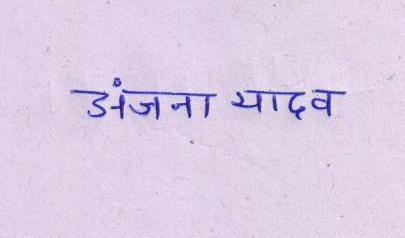 अंजना यादव